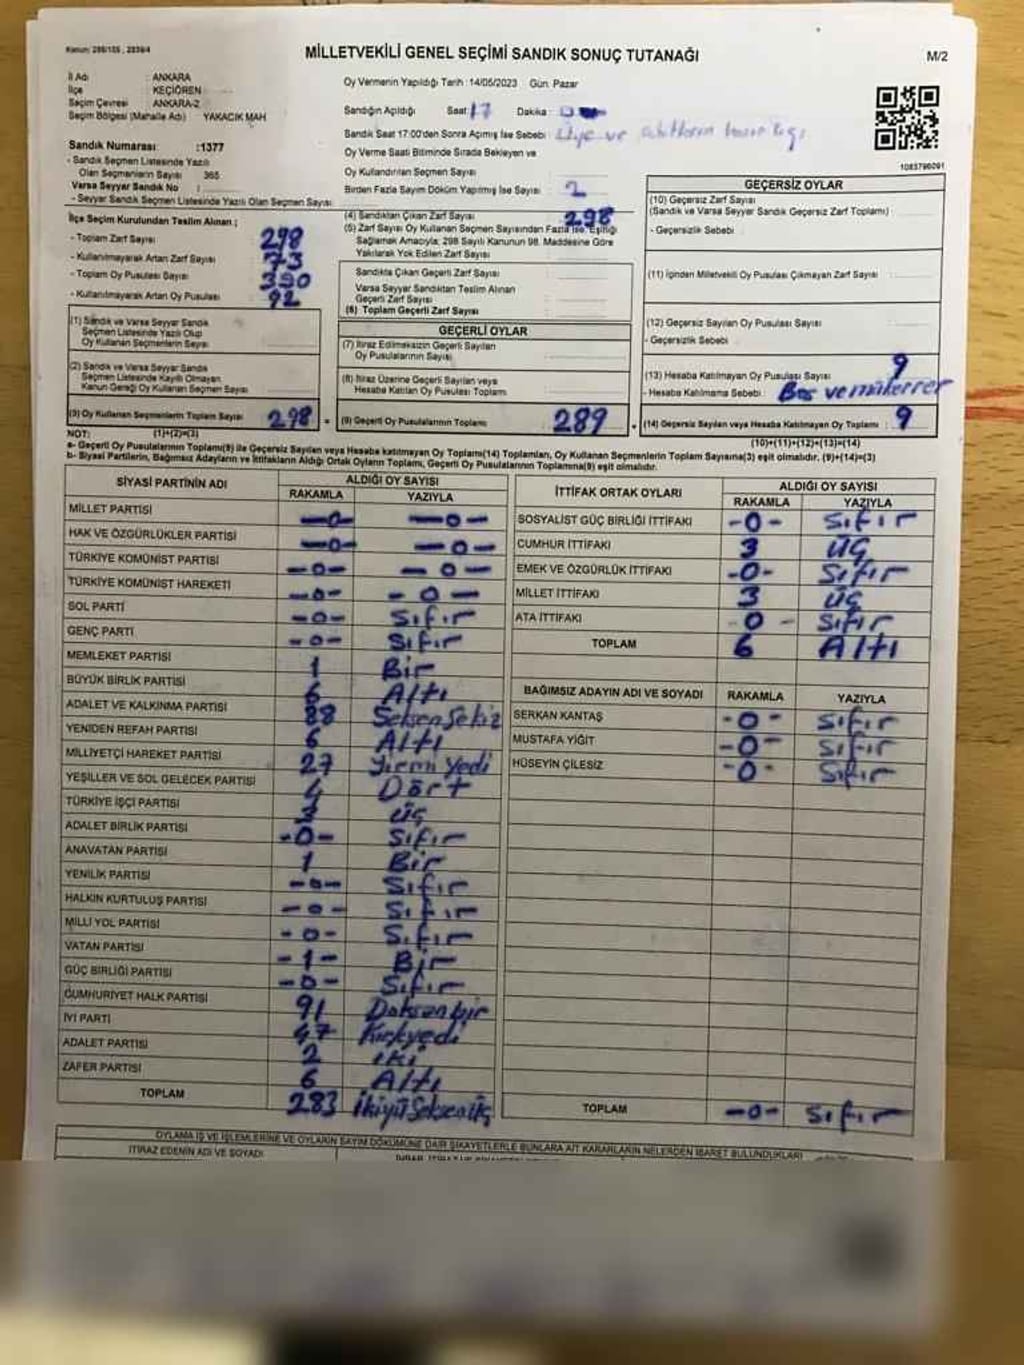 Kanun: 298/105 , 2839/4
MİLLETVEKİLİ GENEL SEÇİMİ SANDIK SONUÇ TUTANAĞI
M/2
İl Adı : ANKARA
İlçe : KEÇİÖREN
Seçim Çevresi : ANKARA-2
Seçim Bölgesi (Mahalle Adı) : YAKACIK MAH
Oy Vermenin Yapıldığı Tarih : 14/05/2023 Gün: Pazar
Sandığın Açıldığı Saat : 17 Dakika :
Sandık Saat 17:00'den Sonra Açımış İse Sebebi : Üye ve
1083796091
Sandık Numarası :1377
- Sandık Seçmen Listesinde Yazılı
Olan Seçmenlerin Sayısı : 365
Varsa Seyyar Sandık No :
- Seyyar Sandık Seçmen Listesinde Yazılı Olan Seçmen Sayısı
Oy Verme Saati Bitiminde Sırada Bekleyen ve
Oy Kullandırılan Seçmen Sayısı :
Birden Fazla Sayım Döküm Yapılmış İse Sayısı : 2
İlçe Seçim Kurulundan Teslim Alınan ;
- Toplam Zarf Sayısı : 298
- Kullanılmayarak Artan Zarf Sayısı : 73
- Toplam Oy Pusulası Sayısı : 390
- Kullanılmayarak Artan Oy Pusulası : 92
(1) Sandık ve Varsa Seyyar Sandık
Seçmen Listesinde Yazılı Olup
Oy Kullanan Seçmenlerin Sayısı
(2) Sandık ve Varsa Seyyar Sandık
Seçmen Listesinde Kayıtlı Olmayan
Kanun Gereği Oy Kullanan Seçmen Sayısı
(3) Oy Kullanan Seçmenlerin Toplam Sayısı 298
(4) Sandıktan Çıkan Zarf Sayısı 298
(5) Zarf Sayısı Oy Kullanan Seçmen Sayısından Fazla ise, Eşitliği
Sağlamak Amacıyla; 298 Sayılı Kanunun 98. Maddesine Göre
Yakılarak Yok Edilen Zarf Sayısı :
Sandıkta Çıkan Geçerli Zarf Sayısı :
Varsa Seyyar Sandıktan Teslim Alınan
Geçerli Zarf Sayısı :
(6) Toplam Geçerli Zarf Sayısı :
GEÇERLİ OYLAR
(7) İtiraz Edilmeksizin Geçerli Sayılan
Oy Pusulalarının Sayısı :
(8) İtiraz Üzerine Geçerli Sayılan veya
Hesaba Katılan Oy Pusulaları Toplamı :
(9) Geçerli Oy Pusulalarının Toplamı 289
GEÇERSİZ OYLAR
(10) Geçersiz Zarf Sayısı
(Sandık ve Varsa Seyyar Sandık Geçersiz Zarf Toplamı) :
- Geçersizlik Sebebi :
(11) İçinden Milletvekili Oy Pusulası Çıkmayan Zarf Sayısı :
(12) Geçersiz Sayılan Oy Pusulası Sayısı :
- Geçersizlik Sebebi :
(13) Hesaba Katılmayan Oy Pusulası Sayısı : 9
- Hesaba Katılmama Sebebi : Boş ve mükerrer
(14) Geçersiz Sayılan veya Hesaba Katılmayan Oy Toplamı : 9
NOT: (1)+(2)=(3)
(10)+(11)+(12)+(13)=(14)
a- Geçerli Oy Pusulalarının Toplamı(9) ile Geçersiz Sayılan veya Hesaba katılmayan Oy Toplamı(14) Toplamları, Oy Kullanan Seçmenlerin Toplam Sayısına(3) eşit olmalıdır. (9)+(14)=(3)
b- Siyasi Partilerin, Bağımsız Adayların ve İttifakların Aldığı Ortak Oyların Toplamı, Geçerli Oy Pusulalarının Toplamına(9) eşit olmalıdır.
SİYASİ PARTİNİN ADI ALDIĞI OY SAYISI
RAKAMLA YAZIYLA
MİLLET PARTİSİ -0- -0-
HAK VE ÖZGÜRLÜKLER PARTİSİ -0- -0-
TÜRKİYE KOMÜNİST PARTİSİ -0- -0-
TÜRKİYE KOMÜNİST HAREKETİ -0- -0-
SOL PARTİ -0- Sıfır
GENÇ PARTİ -0- Sıfır
MEMLEKET PARTİSİ 1 Bir
BÜYÜK BİRLİK PARTİSİ 6 Altı
ADALET VE KALKINMA PARTİSİ 88 Seksen Sekiz
YENİDEN REFAH PARTİSİ 6 Altı
MİLLİYETÇİ HAREKET PARTİSİ 27 Yirmi Yedi
YEŞİLLER VE SOL GELECEK PARTİSİ 4 Dört
TÜRKİYE İŞÇİ PARTİSİ 3 Üç
ADALET BİRLİK PARTİSİ -0- Sıfır
ANAVATAN PARTİSİ 1 Bir
YENİLİK PARTİSİ -0- Sıfır
HALKIN KURTULUŞ PARTİSİ -0- Sıfır
MİLLİ YOL PARTİSİ -0- Sıfır
VATAN PARTİSİ -1- Bir
GÜÇ BİRLİĞİ PARTİSİ -0- Sıfır
CUMHURİYET HALK PARTİSİ 91 Doksan bir
İYİ PARTİ 47 Kırkyedi
ADALET PARTİSİ 2 iki
ZAFER PARTİSİ 6 Altı
TOPLAM 283 İkiyüz Seksenüç
İTTİFAK ORTAK OYLARI ALDIĞI OY SAYISI
RAKAMLA YAZIYLA
SOSYALİST GÜÇ BİRLİĞİ İTTİFAKI -0- Sıfır
CUMHUR İTTİFAKI 3 ÜÇ
EMEK VE ÖZGÜRLÜK İTTİFAKI -0- Sıfır
MİLLET İTTİFAKI 3 ÜÇ
ATA İTTİFAKI -0- Sıfır
TOPLAM 6 Altı
BAĞIMSIZ ADAYIN ADI VE SOYADI RAKAMLA YAZIYLA
SERKAN KANTAŞ -0- Sıfır
MUSTAFA YİĞİT -0- Sıfır
HÜSEYİN ÇİLESİZ -0- Sıfır
TOPLAM -0- Sıfır
OYLAMA İŞ VE İŞLEMLERİNE VE OYLARIN SAYIM DÖKÜMÜNE DAİR ŞİKAYETLERLE BUNLARA AİT KARARLARIN NELERDEN İBARET BULUNDUKLARI
İTİRAZ EDENİN ADI VE SOYADI